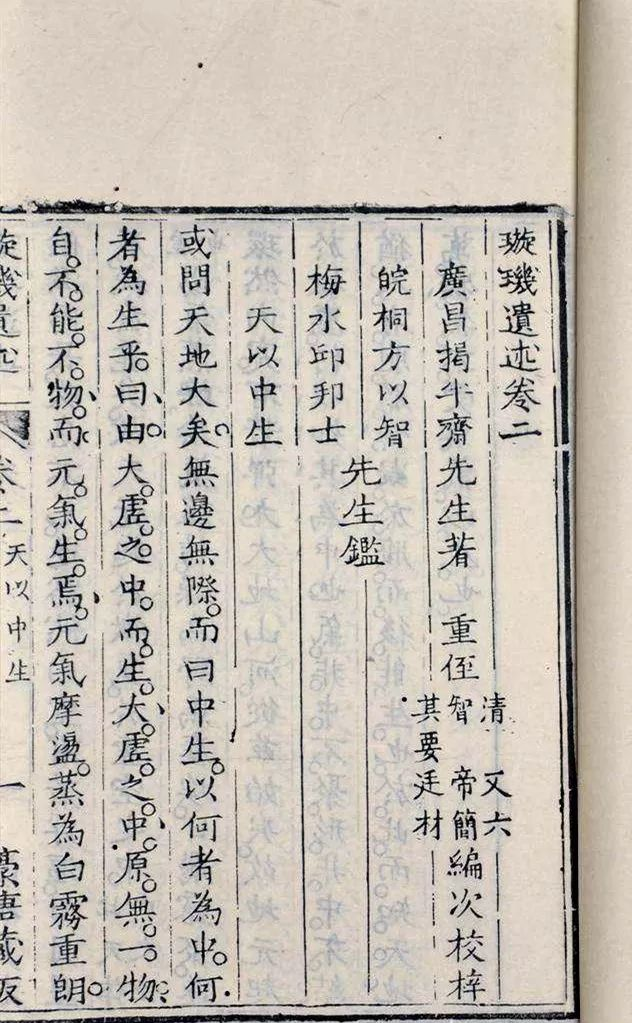 璇璣遺述卷二
廣昌揭半齋先生著 重侄
清 又六
智 帝簡
其要 廷材
編次校梓
皖桐方以智
梅水邱邦士
先生鑑
天以中生
或問天地大矣無邊無際而曰中生以何者為中何
者為生乎曰由大虛之中而生大虛之中原無一物
自不能不物而元氣生焉元氣摩盪蒸為白霧重朗
璇璣遺述 卷二 天以中生 一 藏板